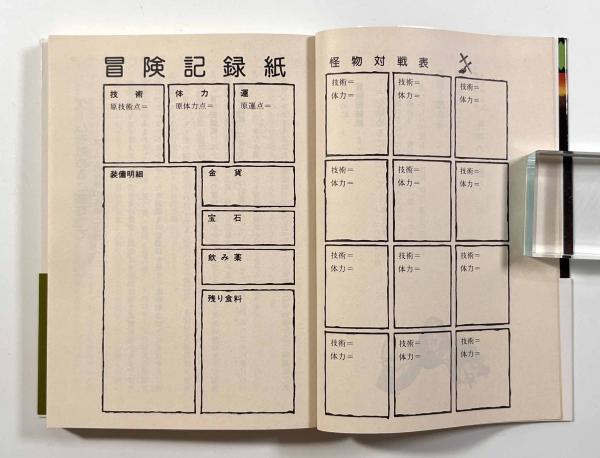 冒険記録紙
技術
原技術点=
体力
原体力点=
運
原運点=
装備明細
金貨
宝石
飲み薬
残り食料
怪物対戦表
技術=
体力=
技術=
体力=
技術=
体力=
技術=
体力=
技術=
体力=
技術=
体力=
技術=
体力=
技術=
体力=
技術=
体力=
技術=
体力=
技術=
体力=
技術=
体力=